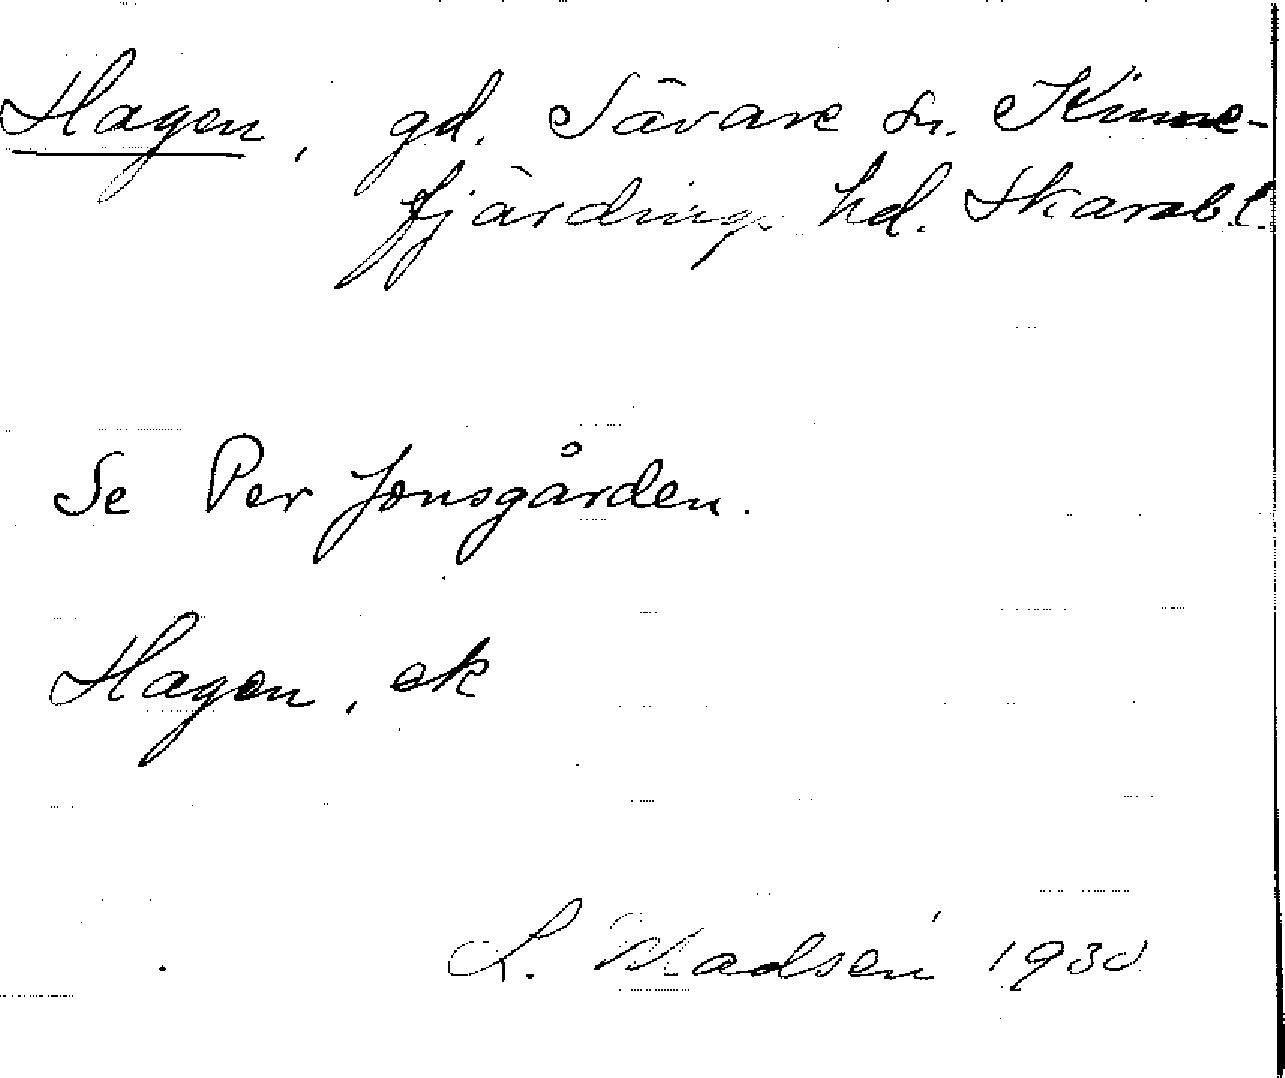 Hagen, gd. Sävare sn. Kinne-
fjärdings hd. Skarabl.
Se Per Jonsgården.
Hagen, ek
L. Madsén 1930